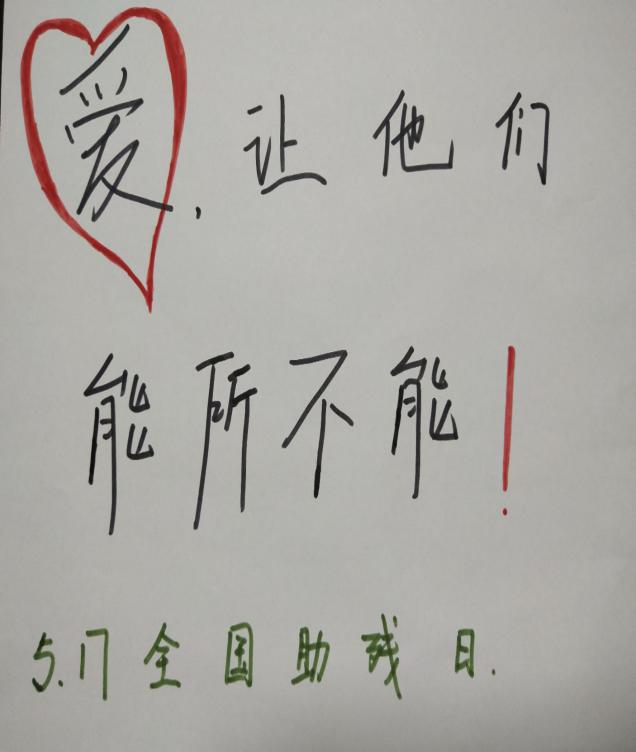 爱,让他们
能所不能!
5.17全国助残日.